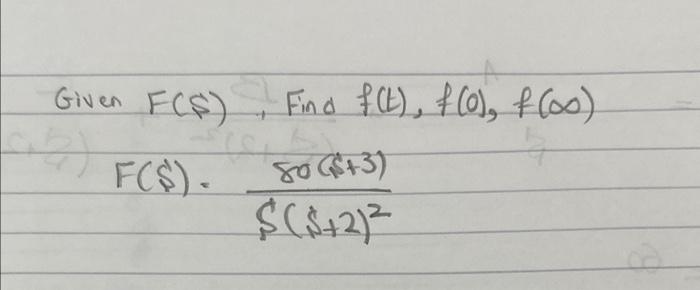 Given F($), Find f(t), f(0), f(∞)
F($) = 80($+3)
$($+2)²